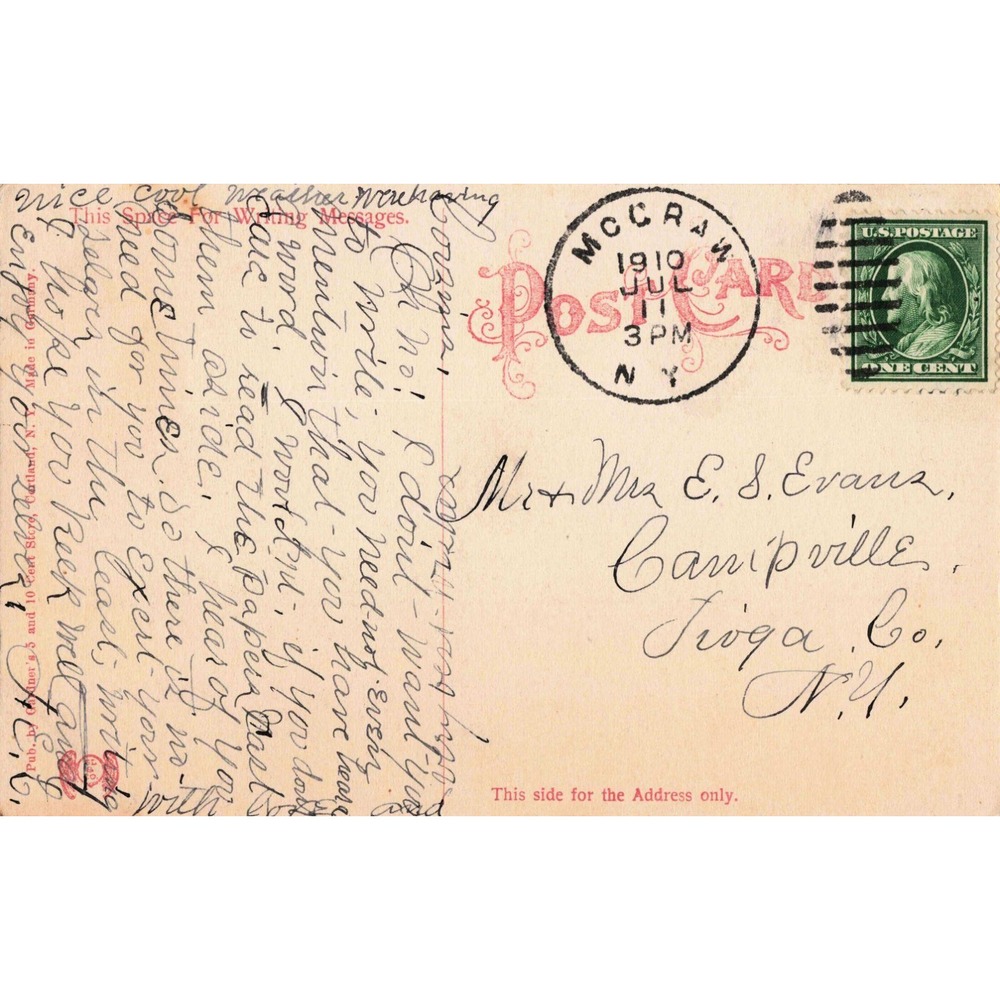 nice cool weather we're having
This Space For Writing Messages.
POST CARD
MCGRAW
1910
JUL
11
3 PM
N Y
U.S. POSTAGE
ONE CENT
Oh no! I don't want you
to write, you need not even
mention that you have heard
a word. I wouldn't, if you don't
care to read the papers
them aside, I hear of you
some inner, so there is no
need for you to exert your
in the least, writing
I hope you keep well and
enjoy
Mr & Mrs E. S. Evans,
Campville,
Tioga Co,
N.Y.
This side for the Address only.
Pub. by Gardner's 5 and 10 Cent Store, Cortland, N. Y. Made in Germany.